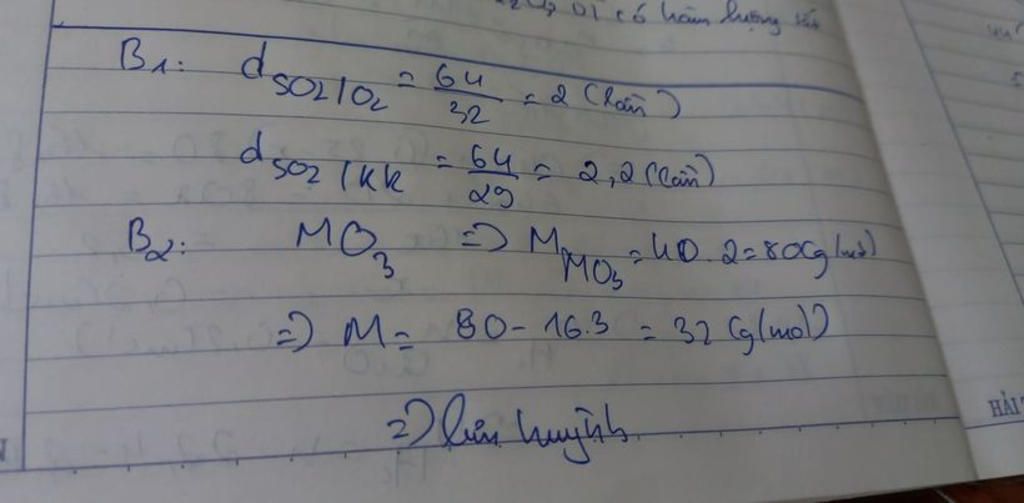 có hàm lượng
B1: d SO2/O2 = 64/32 = 2 (lần)
d SO2/KK = 64/29 = 2,2 (lần)
B2: MO3 => M MO3 = 40.2 = 80(g/mol)
=> M = 80 - 16.3 = 32 (g/mol)
=> lưu huỳnh
HẢI